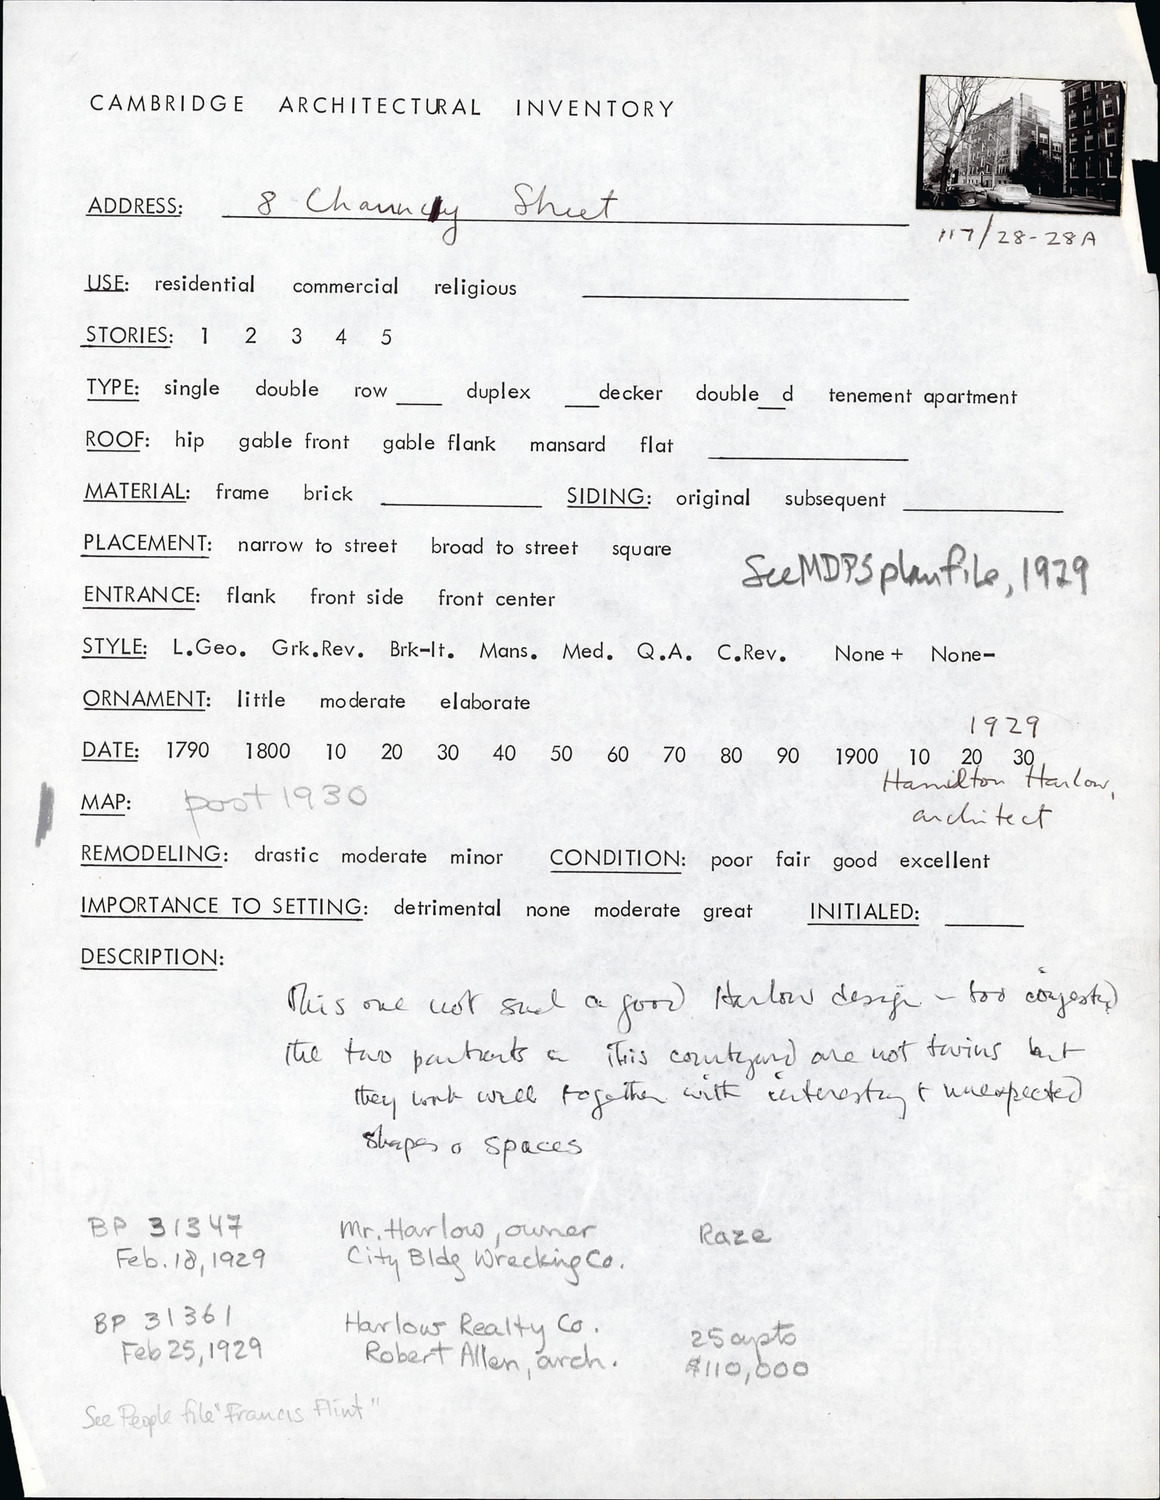 CAMBRIDGE ARCHITECTURAL INVENTORY
ADDRESS: 8 Chauncy Street
117/28-28A
USE: residential commercial religious
STORIES: 1 2 3 4 5
TYPE: single double row ____ duplex ___decker double__d tenement apartment
ROOF: hip gable front gable flank mansard flat
MATERIAL: frame brick SIDING: original subsequent
PLACEMENT: narrow to street broad to street square
See MDPS plan file, 1929
ENTRANCE: flank front side front center
STYLE: L.Geo. Grk.Rev. Brk-It. Mans. Med. Q.A. C.Rev. None+ None-
ORNAMENT: little moderate elaborate
1929
DATE: 1790 1800 10 20 30 40 50 60 70 80 90 1900 10 20 30
Hamilton Harlow,
architect
MAP: post 1930
REMODELING: drastic moderate minor CONDITION: poor fair good excellent
IMPORTANCE TO SETTING: detrimental none moderate great INITIALED:
DESCRIPTION:
This one not such a good Harlow design - too congested
The two this courtyard are not twins but
they work well together with interesting & unexpected
shapes o spaces
BP 31347 Mr. Harlow, owner Raze
Feb. 18, 1929 City Bldg Wrecking Co.
BP 31361 Harlow Realty Co. 25 apts
Feb 25, 1929 Robert Allen, arch. $110,000
See People file "Francis Flint"